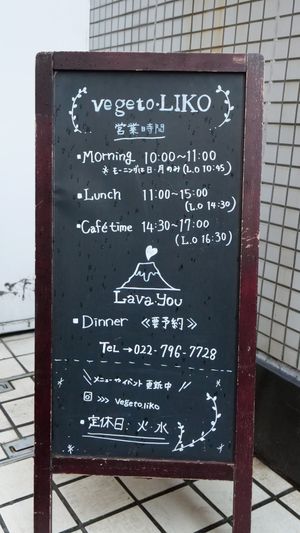 vegeto・LIKO
営業時間
・Morning 10:00〜11:00
※モーニングは日・月のみ (L.O 10:45)
・Lunch 11:00〜15:00
(L.O 14:30)
・Cafétime 14:30〜17:00
(L.O 16:30)
Lava.You
・Dinner 《要予約》
TEL→022-796-7728
メニューやイベント更新中
>>> Vegeto.liko
・定休日：火・水